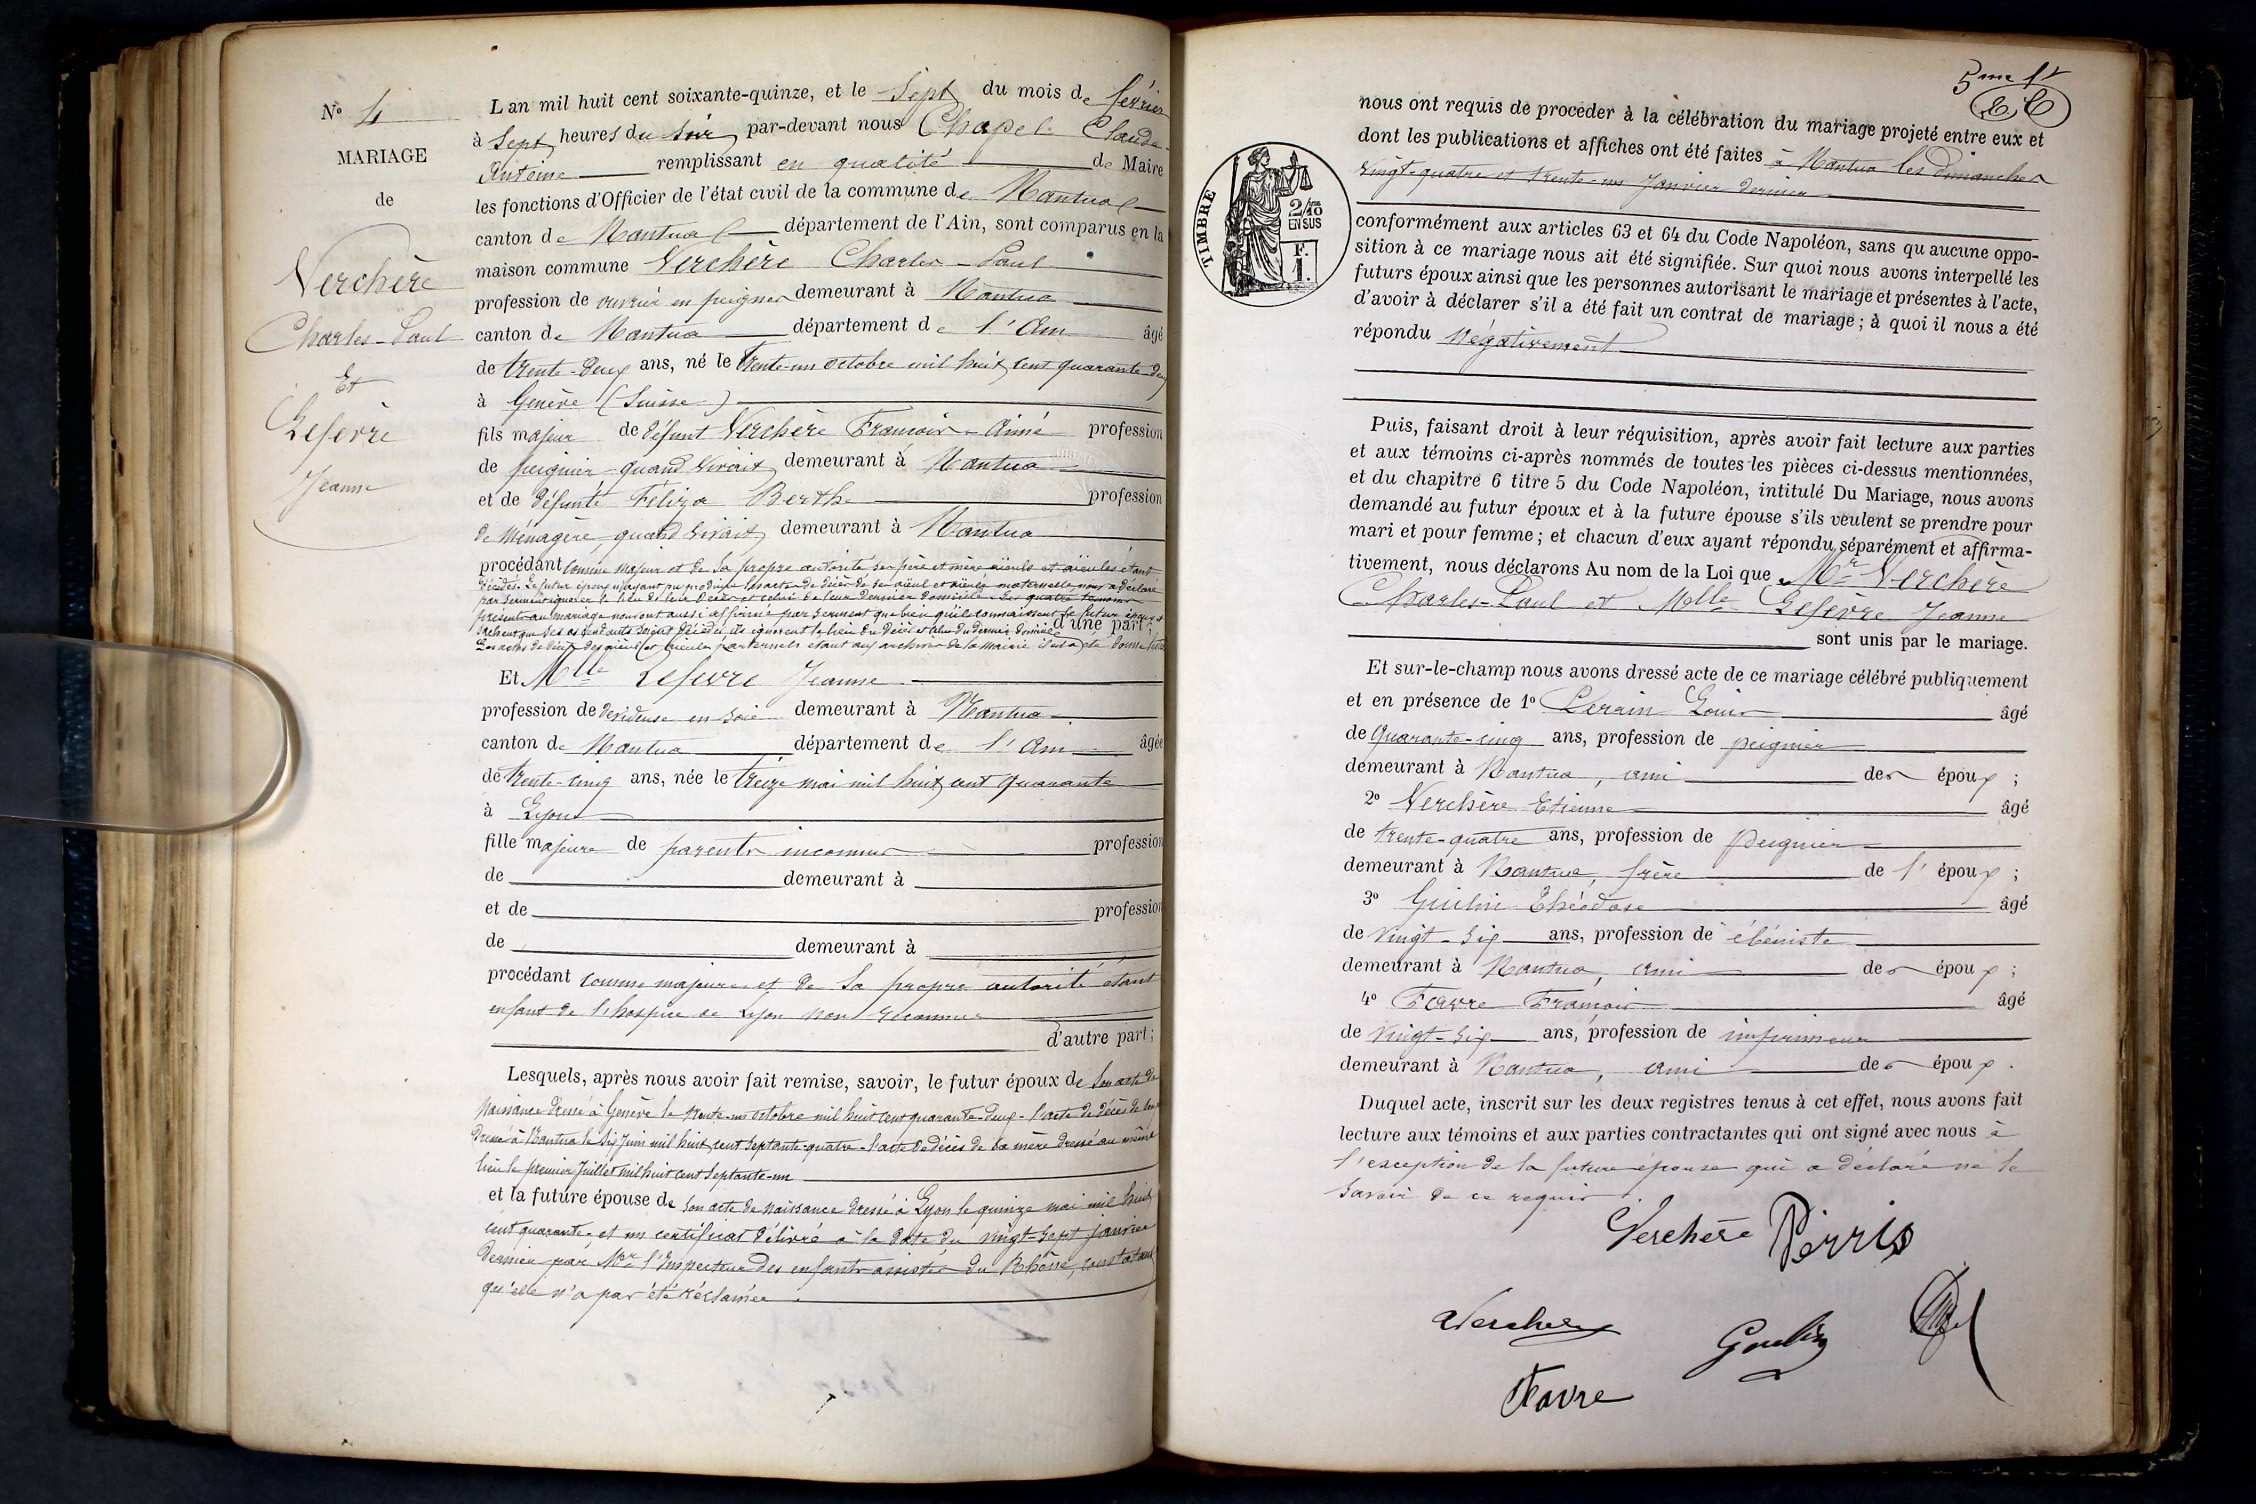 N° 4
MARIAGE
de
Verchère
Charles-Paul
Et
Lefèvre
Jeanne
L'an mil huit cent soixante-quinze, et le Sept du mois de février
à Sept heures du soir par-devant nous Chapel Claude-
Antoine remplissant en qualité de Maire
les fonctions d'Officier de l'état civil de la commune de Nantua
canton de Nantua département de l'Ain, sont comparus en la
maison commune Verchère Charles-Paul
profession de ouvrier en peignes demeurant à Nantua
canton de Nantua département de l'Ain âgé
de trente-deux ans, né le trente-un octobre mil huit cent quarante-deux
à Genève (Suisse)
fils majeur de défunt Verchère François-Aimé profession
de peignier quand vivait demeurant à Nantua
et de défunte Féliza Berthe profession
de Ménagère quand vivait demeurant à Nantua
procédant comme majeur et de sa propre autorité ses père et mère aïeuls et aïeules étant
décédés. Le futur époux n'ayant pu produire l'acte de décès de ses aïeul et aïeule maternelle nous a déclaré
par serment ignorer le lieu de leur décès et celui de leur dernier domicile. Les quatre témoins
présents au mariage nous ont aussi affirmé par serment que bien qu'ils connaissent le futur époux et
sachent que ses ascendants soient décédés, ils ignorent le lieu du décès et celui du dernier domicile d'une part;
Les actes de décès des aïeul et aïeule paternels étant aux archives de la mairie
Et Mlle Lefèvre Jeanne
profession de devideuse en soie demeurant à Nantua
canton de Nantua département de l'Ain âgée
de trente-cinq ans, née le treize mai mil huit cent quarante
à Lyon
fille majeure de parents inconnus profession
de demeurant à
et de profession
de demeurant à
procédant comme majeure et de sa propre autorité étant
enfant de l'hospice de Lyon non reconnue
d'autre part;
Lesquels, après nous avoir fait remise, savoir, le futur époux de son acte de
naissance dressé à Genève le trente-un octobre mil huit cent quarante-deux - l'acte de décès de son père
dressé à Nantua le dix juin mil huit cent septante-quatre - l'acte de décès de sa mère dressé au même
lieu le premier Juillet mil huit cent septante-un
et la future épouse de son acte de naissance dressé à Lyon le quinze mai mil huit
cent quarante - et un certificat délivré à la date du vingt-sept janvier
dernier par Mr l'Inspecteur des enfants assistés du Rhône, constatant
qu'elle n'a pas été réclamée.
5me ft
TIMBRE
2/10
EN SUS
F.
1.
nous ont requis de procéder à la célébration du mariage projeté entre eux et
dont les publications et affiches ont été faites à Nantua les dimanches
vingt-quatre et trente-un Janvier dernier
conformément aux articles 63 et 64 du Code Napoléon, sans qu'aucune oppo-
sition à ce mariage nous ait été signifiée. Sur quoi nous avons interpellé les
futurs époux ainsi que les personnes autorisant le mariage et présentes à l'acte,
d'avoir à déclarer s'il a été fait un contrat de mariage; à quoi il nous a été
répondu Négativement
Puis, faisant droit à leur réquisition, après avoir fait lecture aux parties
et aux témoins ci-après nommés de toutes les pièces ci-dessus mentionnées,
et du chapitre 6 titre 5 du Code Napoléon, intitulé Du Mariage, nous avons
demandé au futur époux et à la future épouse s'ils veulent se prendre pour
mari et pour femme; et chacun d'eux ayant répondu séparément et affirma-
tivement, nous déclarons Au nom de la Loi que Mr Verchère
Charles-Paul et Melle Lefèvre Jeanne
sont unis par le mariage.
Et sur-le-champ nous avons dressé acte de ce mariage célébré publiquement
et en présence de 1° Perrin Louis âgé
de Quarante-cinq ans, profession de peignier
demeurant à Nantua, ami des époux;
2° Verchère Etienne âgé
de trente-quatre ans, profession de Peignier
demeurant à Nantua, frère de l'époux;
3° Guélin Théodose âgé
de vingt-six ans, profession de ébéniste
demeurant à Nantua, ami des époux;
4° Favre François âgé
de vingt-six ans, profession de imprimeur
demeurant à Nantua, ami des époux.
Duquel acte, inscrit sur les deux registres tenus à cet effet, nous avons fait
lecture aux témoins et aux parties contractantes qui ont signé avec nous à
l'exception de la future épouse qui a déclaré ne le
savoir de ce requis.
Verchère Perris
Verchere
Goulin
Favre